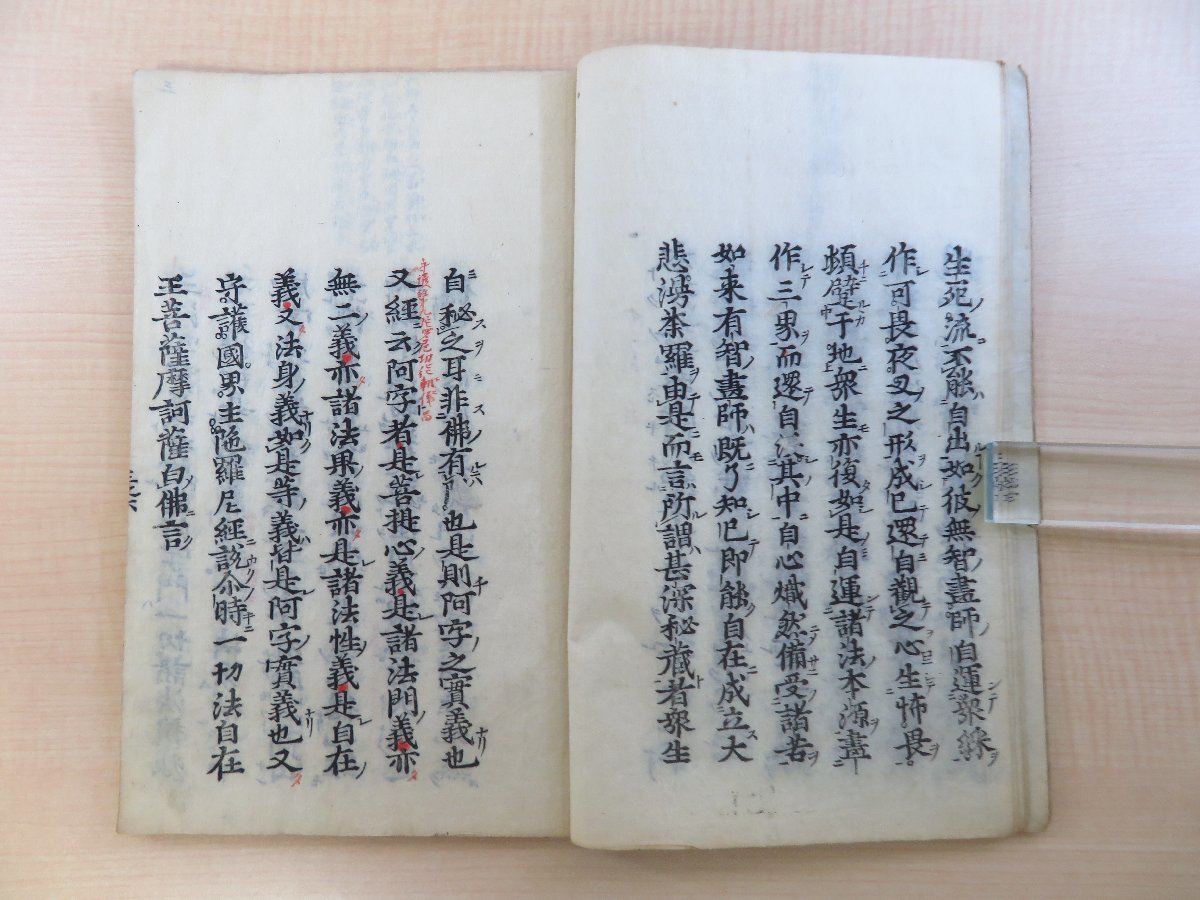 生死流不能自出如彼無智畫師自運衆綵
作可畏夜叉之形成已還自觀之心生怖畏
頓躄于地衆生亦復如是自運諸法本源畫
作三界而還自沒其中自心熾然備受諸苦
如来有智畫師既了知已即能自在成立大
悲漫荼羅由是而言所謂甚深秘蔵者衆生
自秘之耳非佛有𠫤也是則阿字之實義也
又經云阿字者是菩提心義是諸法門義亦
無二義亦諸法果義亦是諸法性義是自在
義又法身義如是等義皆是阿字實義也又
守護國界主陁羅尼經說尒時一切法自在
王菩薩摩訶薩白佛言